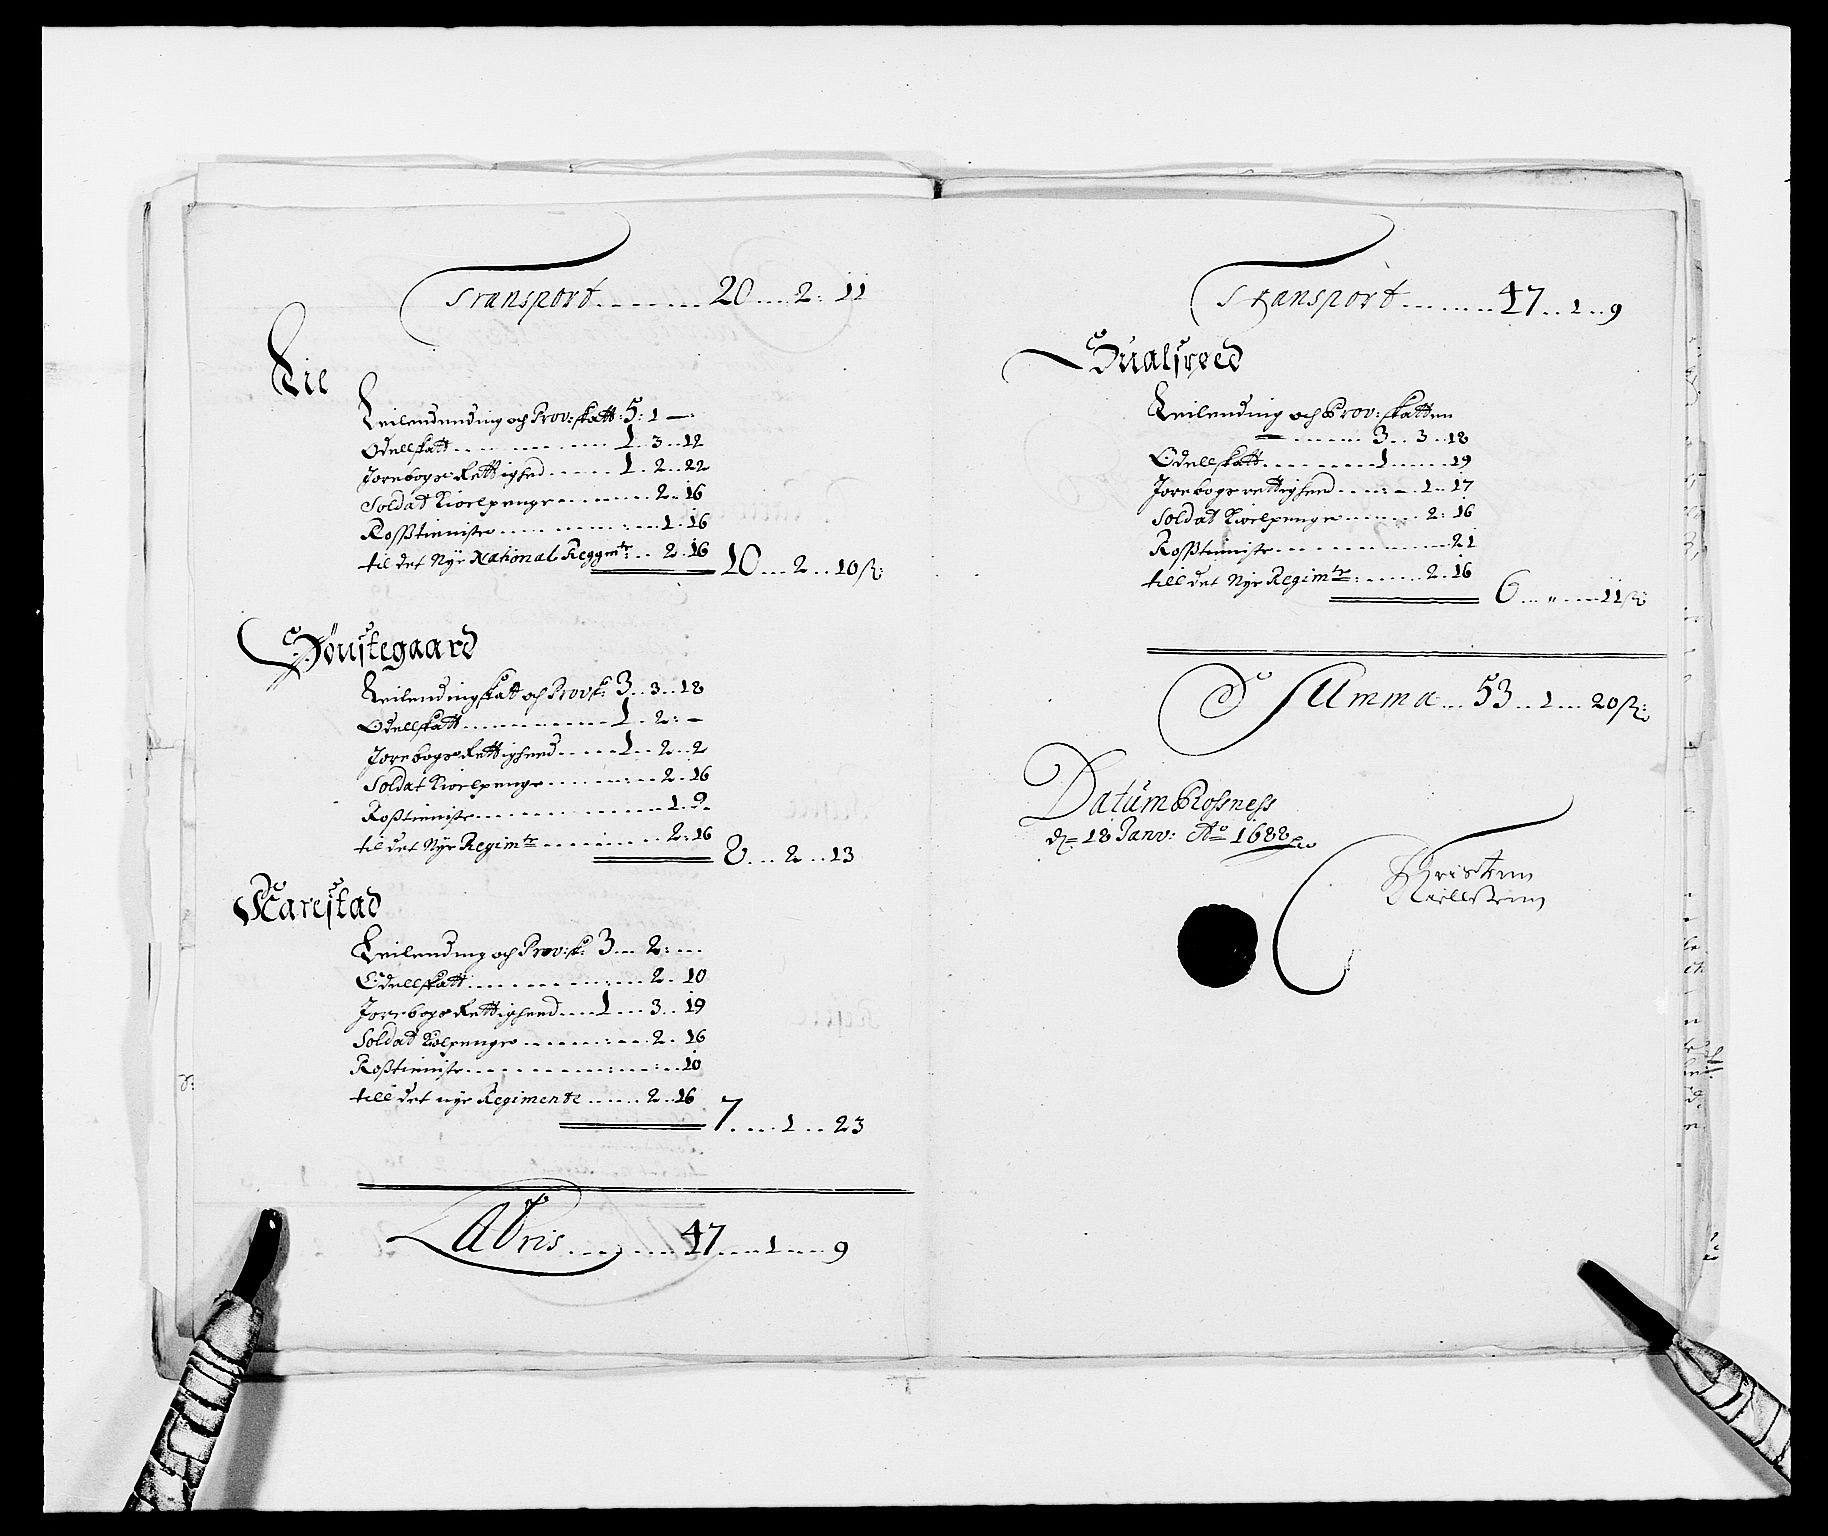 Transport ........ 20 ... 2 : 11
Lie
Leilendending och Prov: skatt: 5: 1 — :
Odellskatt ............ 1 .. 3 .. 12
Jorebogs Rettighed ...... 1 .. 2 .. 22
Soldat Kiorlpenge ........ 2 .. 16
Rosstienniste ............ : ... 1 . 16
til det Nye National Reggmtr: .. 2 . 16 10 ... 2 .. 10 sk:
Tönstegaard
Leilendingskatt och Provsk: 3 .. 3 .. 18
Odellskatt ............ 1 .. 2 : —
Jorebogs Rettigheed ...... 1 .. 2 .. 2
Soldat Kiorlpenge ........ : ... 2 . 16
Rostienniste .............. 1 . 9 .
til det Nye Regimtr ............ 2 : 16 8 ... 2 .. 13
Narestad
Leilending och Prov: sk: 3 ... 2 : ...
Odellskatt ............ : .... 2 .. 10
Jorrebogs Rettigheed .... 1 ... 3 .. 19
Soldat Kiolpenge ....... : ... 2 .. 16
Rostienniste ............ : .... : ... 10
till det nye Regimentt ...... 2 .. 16 7 .... 1 .. 23
Labris ........ 47 .... 1 ... 9
Transport ....... 47 .. 1 .. 9
Leilending och Prov: skatten
— ........ 3 .. 3 .. 18
Odellskatt ........ 1 ...... 19
Jorebogs rettigheed .... : — . 1 .. 17
Soldat Kiorlpenge ........ 2 : 16
Rosstienniste ............ 21
till det Nye Regimtr: ....... 2 . 16 6 ... " .... 11 sk:
Summa ... 53 .. 1 ... 20 sk:
Datum Rossness
d= 18 Janv: Ao 1688